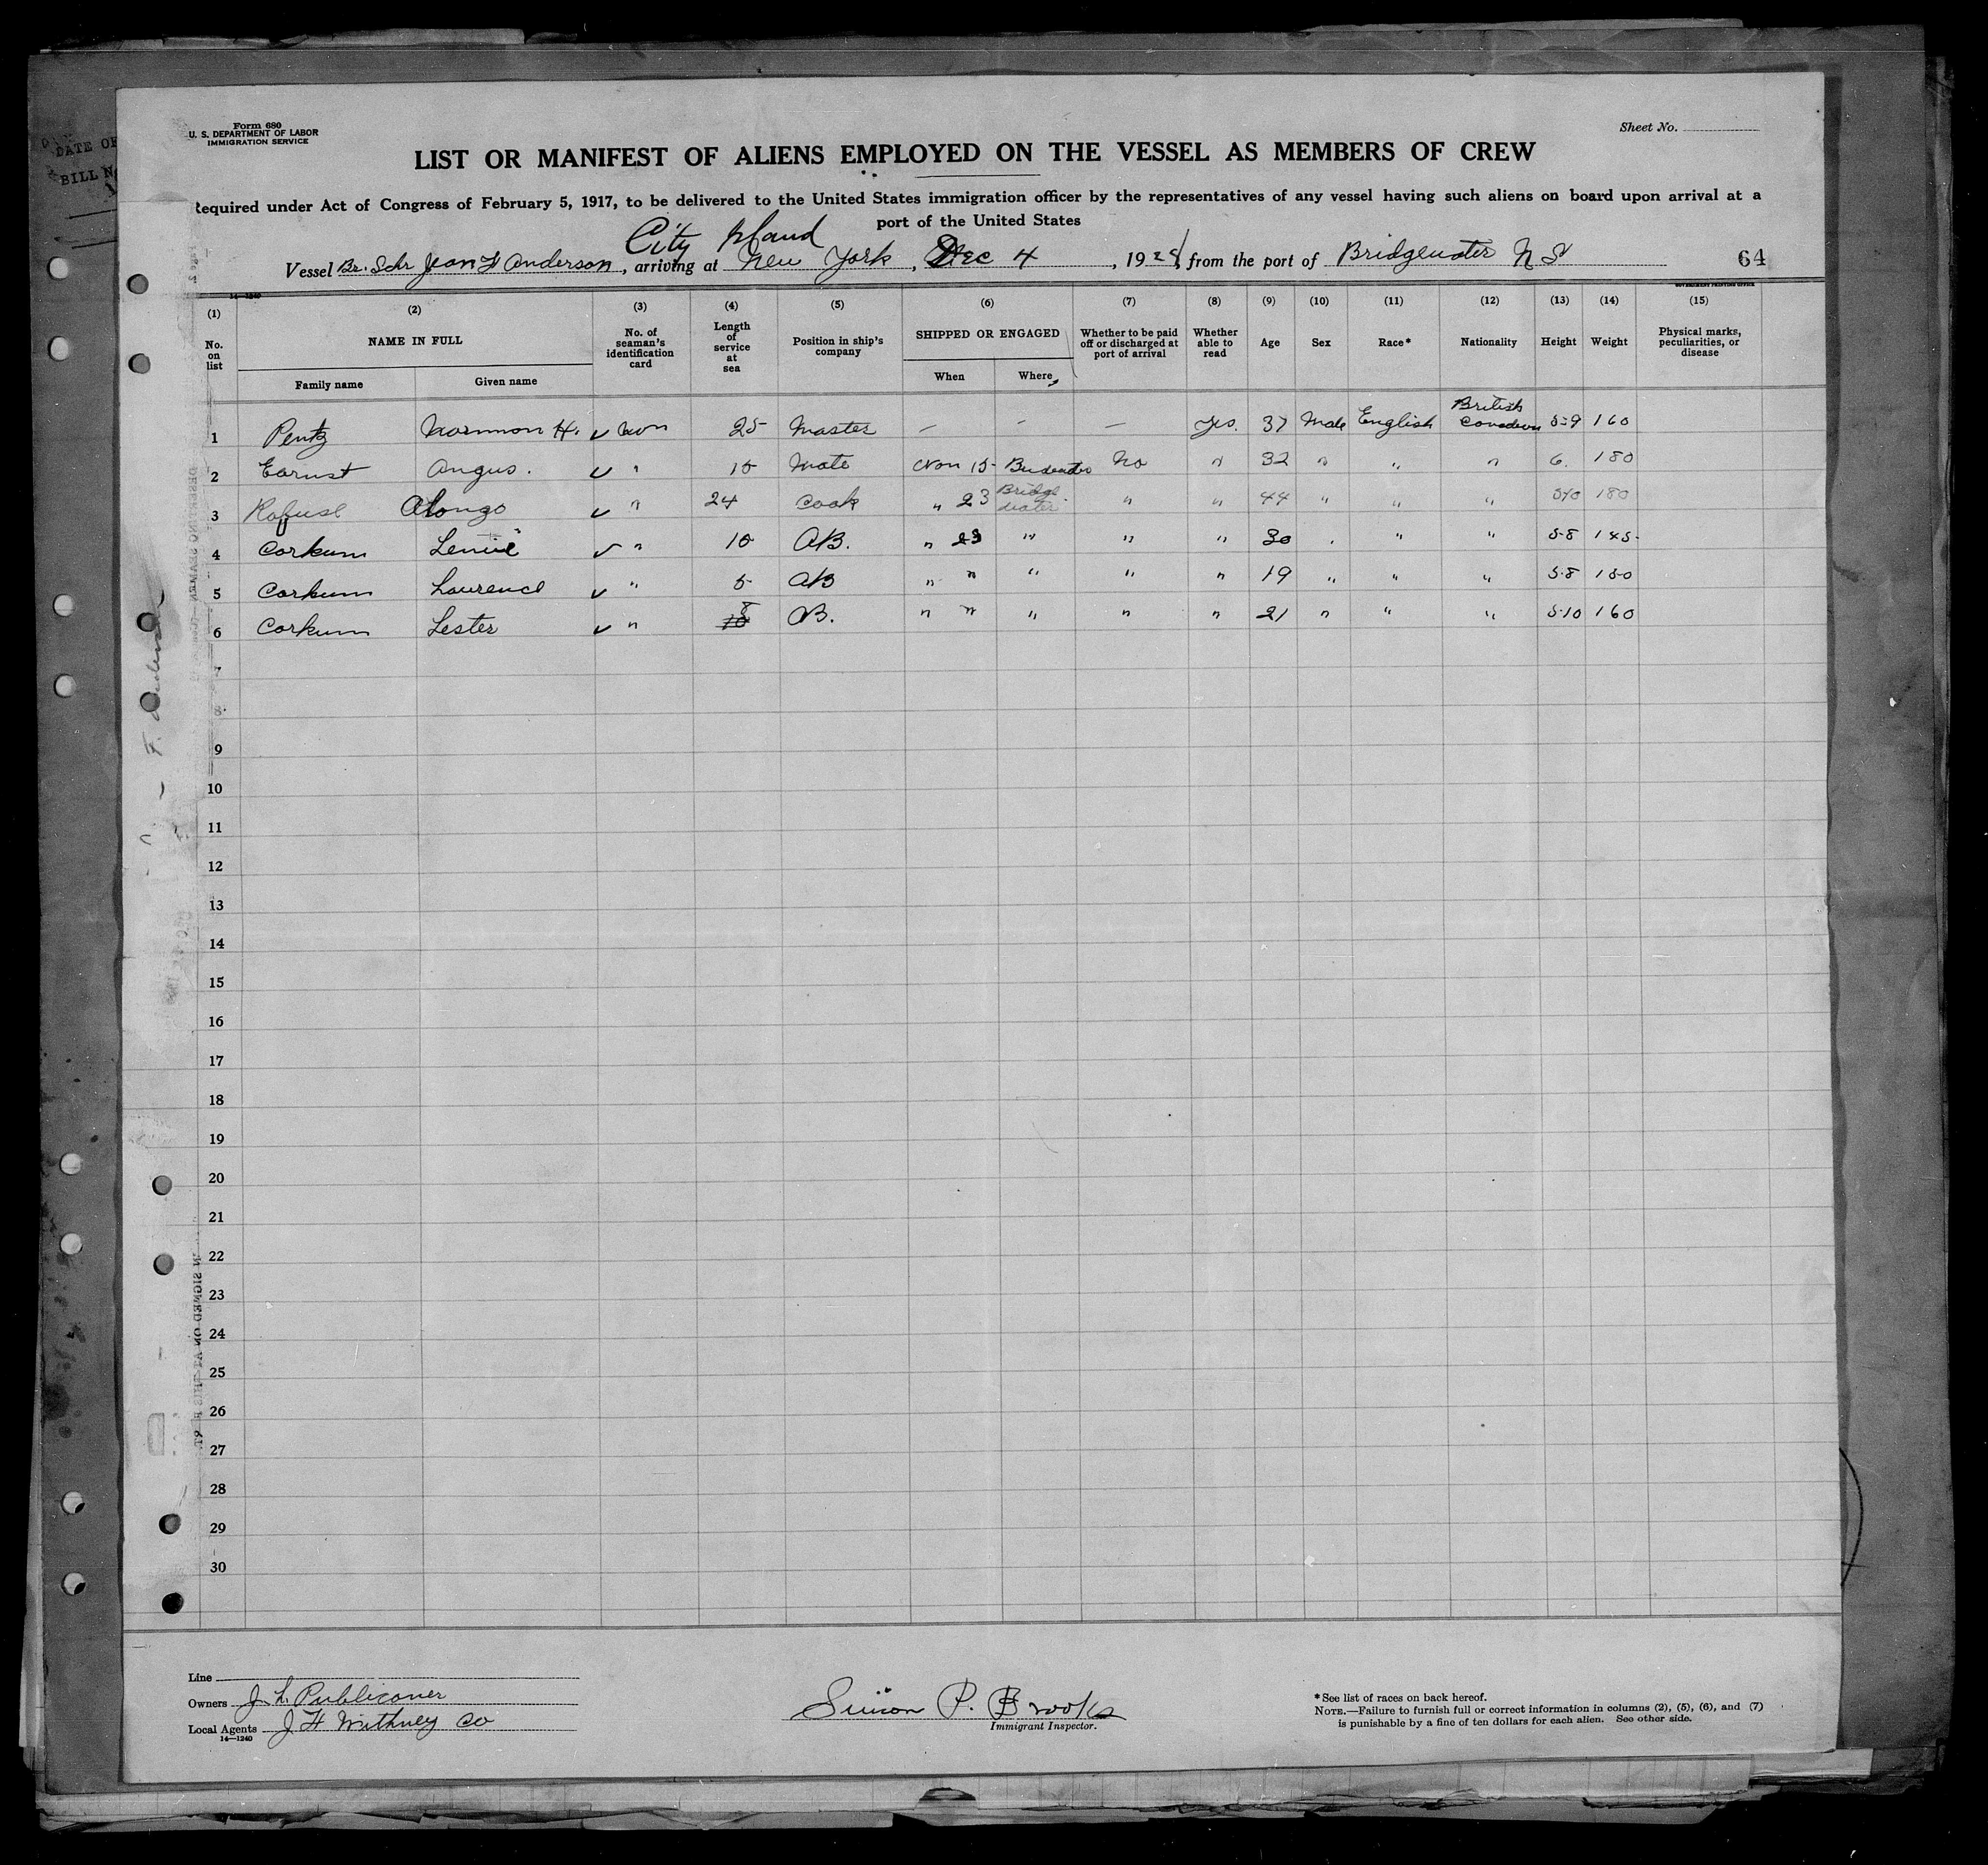 Form 680
U. S. DEPARTMENT OF LABOR
IMMIGRATION SERVICE
Sheet No.
LIST OR MANIFEST OF ALIENS EMPLOYED ON THE VESSEL AS MEMBERS OF CREW
Required under Act of Congress of February 5, 1917, to be delivered to the United States immigration officer by the representatives of any vessel having such aliens on board upon arrival at a
port of the United States
City Island
Vessel Br. Schr Jean F Anderson, arriving at New York, Dec 4, 1928, from the port of Bridgewater N S
64
(1) (2) (3) (4) (5) (6) (7) (8) (9) (10) (11) (12) (13) (14) (15)
No. on list
NAME IN FULL
Family name
Given name
No. of seaman's identification card
Length of service at sea
Position in ship's company
SHIPPED OR ENGAGED
When
Where
Whether to be paid off or discharged at port of arrival
Whether able to read
Age
Sex
Race*
Nationality
Height
Weight
Physical marks, peculiarities, or disease
1 Pentz Normon H. 25 Master — — — Yes. 37 Male English British Canadian 5-9 160
2 Earnst Angus. " 15 Mate Nov 15 No " 32 " " " 6. 180
3 Rafuse Alongo " 24 Cook " 23 Bridgewater " " 44 " " " 5/10 180
4 Corkum " 10 AB. " 23 " " " 30 " " " 5-8 145
5 Corkum Laurence " 5 AB " " " " " 19 " " " 5-8 150
6 Corkum Lester " 8 AB. " " " " " 21 " " " 5-10 160
7
8
9
10
11
12
13
14
15
16
17
18
19
20
21
22
23
24
25
26
27
28
29
30
Line
Owners J. L. Publicover
Local Agents J F Whitney Co
14—1240
Simon P. Brooks
Immigrant Inspector.
* See list of races on back hereof.
NOTE.—Failure to furnish full or correct information in columns (2), (5), (6), and (7)
is punishable by a fine of ten dollars for each alien. See other side.